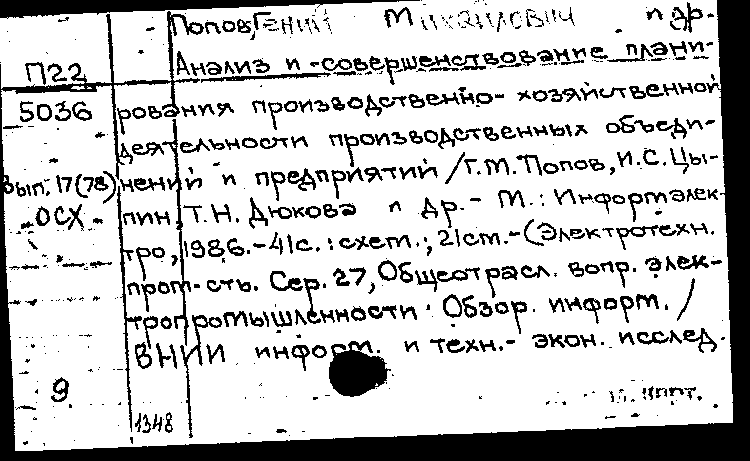 Попов, Гений Михайлович и др.
П22
Анализ и совершенствование плани-
5036
рования производственно-хозяйственной
деятельности производственных объеди-
Вып. 17(78)
нений и предприятий / Г.М. Попов, И.С. Цы-
ОСХ
пин, Т.Н. Дюкова и др. - М.: Информэлек-
тро, 1986. - 41с.: схем.; 21см. - (Электротехн.
пром-сть. Сер. 27, Общеотрасл. вопр. элек-
тропромышленности: Обзор. информ. /
ВНИИ информ. и техн.- экон. исслед.
9
1348